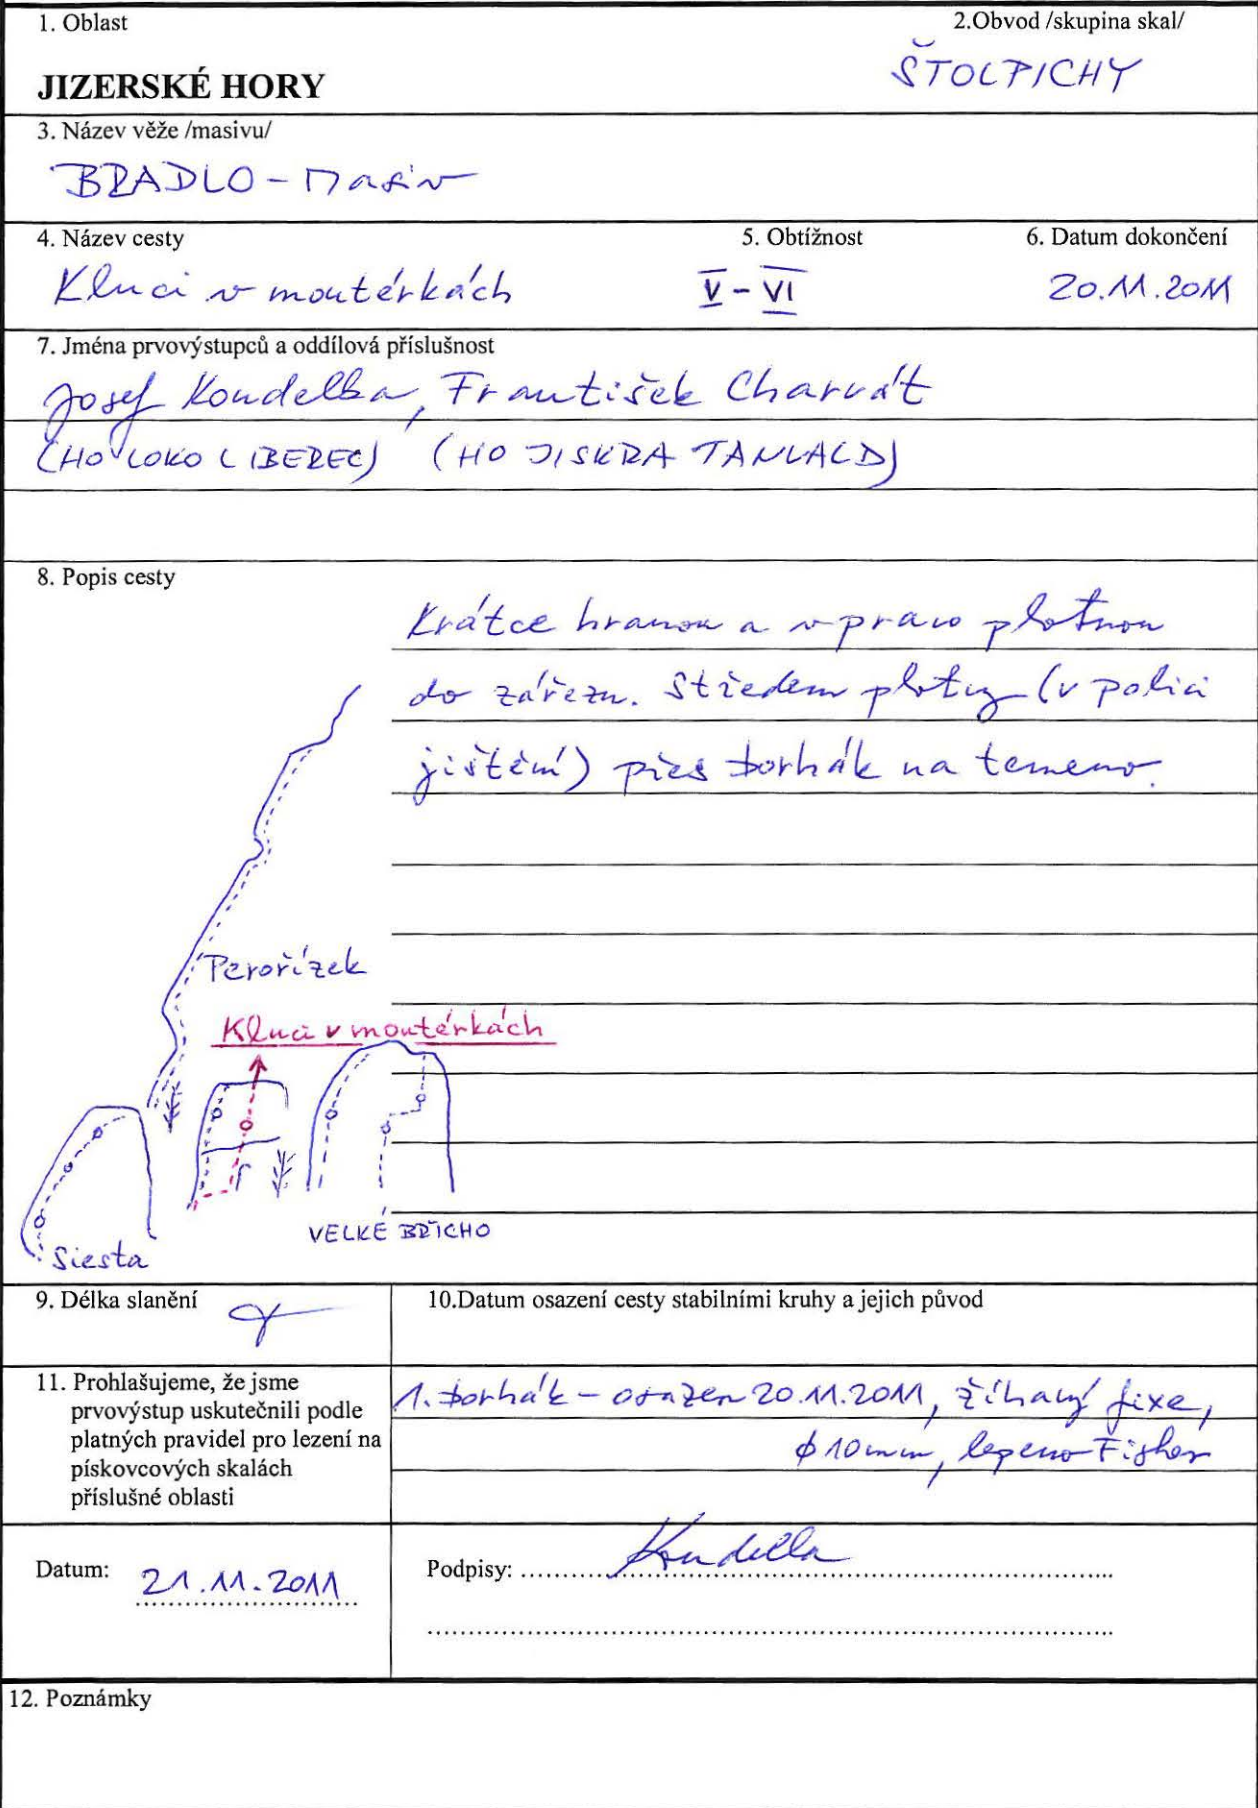 1. Oblast
2.Obvod /skupina skal/
JIZERSKÉ HORY
ŠTOLPICHY
3. Název věže /masivu/
BRADLO - Masiv
4. Název cesty
5. Obtížnost
6. Datum dokončení
Kluci v montérkách
V - VI
20.11.2011
7. Jména prvovýstupců a oddílová příslušnost
Josef Koudelka, František Charvát
(HO LOKO LIBEREC) (HO JISKRA TANVALD)
8. Popis cesty
Krátce hranou a vpravo plotnou
do zářezu. Středem plotny (v polici
jištění) přes borhák na temeno.
Perořízek
Kluci v montérkách
VELKÉ BŘICHO
Siesta
9. Délka slanění
10.Datum osazení cesty stabilními kruhy a jejich původ
11. Prohlašujeme, že jsme
prvovýstup uskutečnili podle
platných pravidel pro lezení na
pískovcových skalách
příslušné oblasti
1. borhák - osazen 20.11.2011, žíhaný fixe,
ϕ 10mm, lepeno Fisher
Datum: 21.11.2011
Podpisy: Koudelka
12. Poznámky